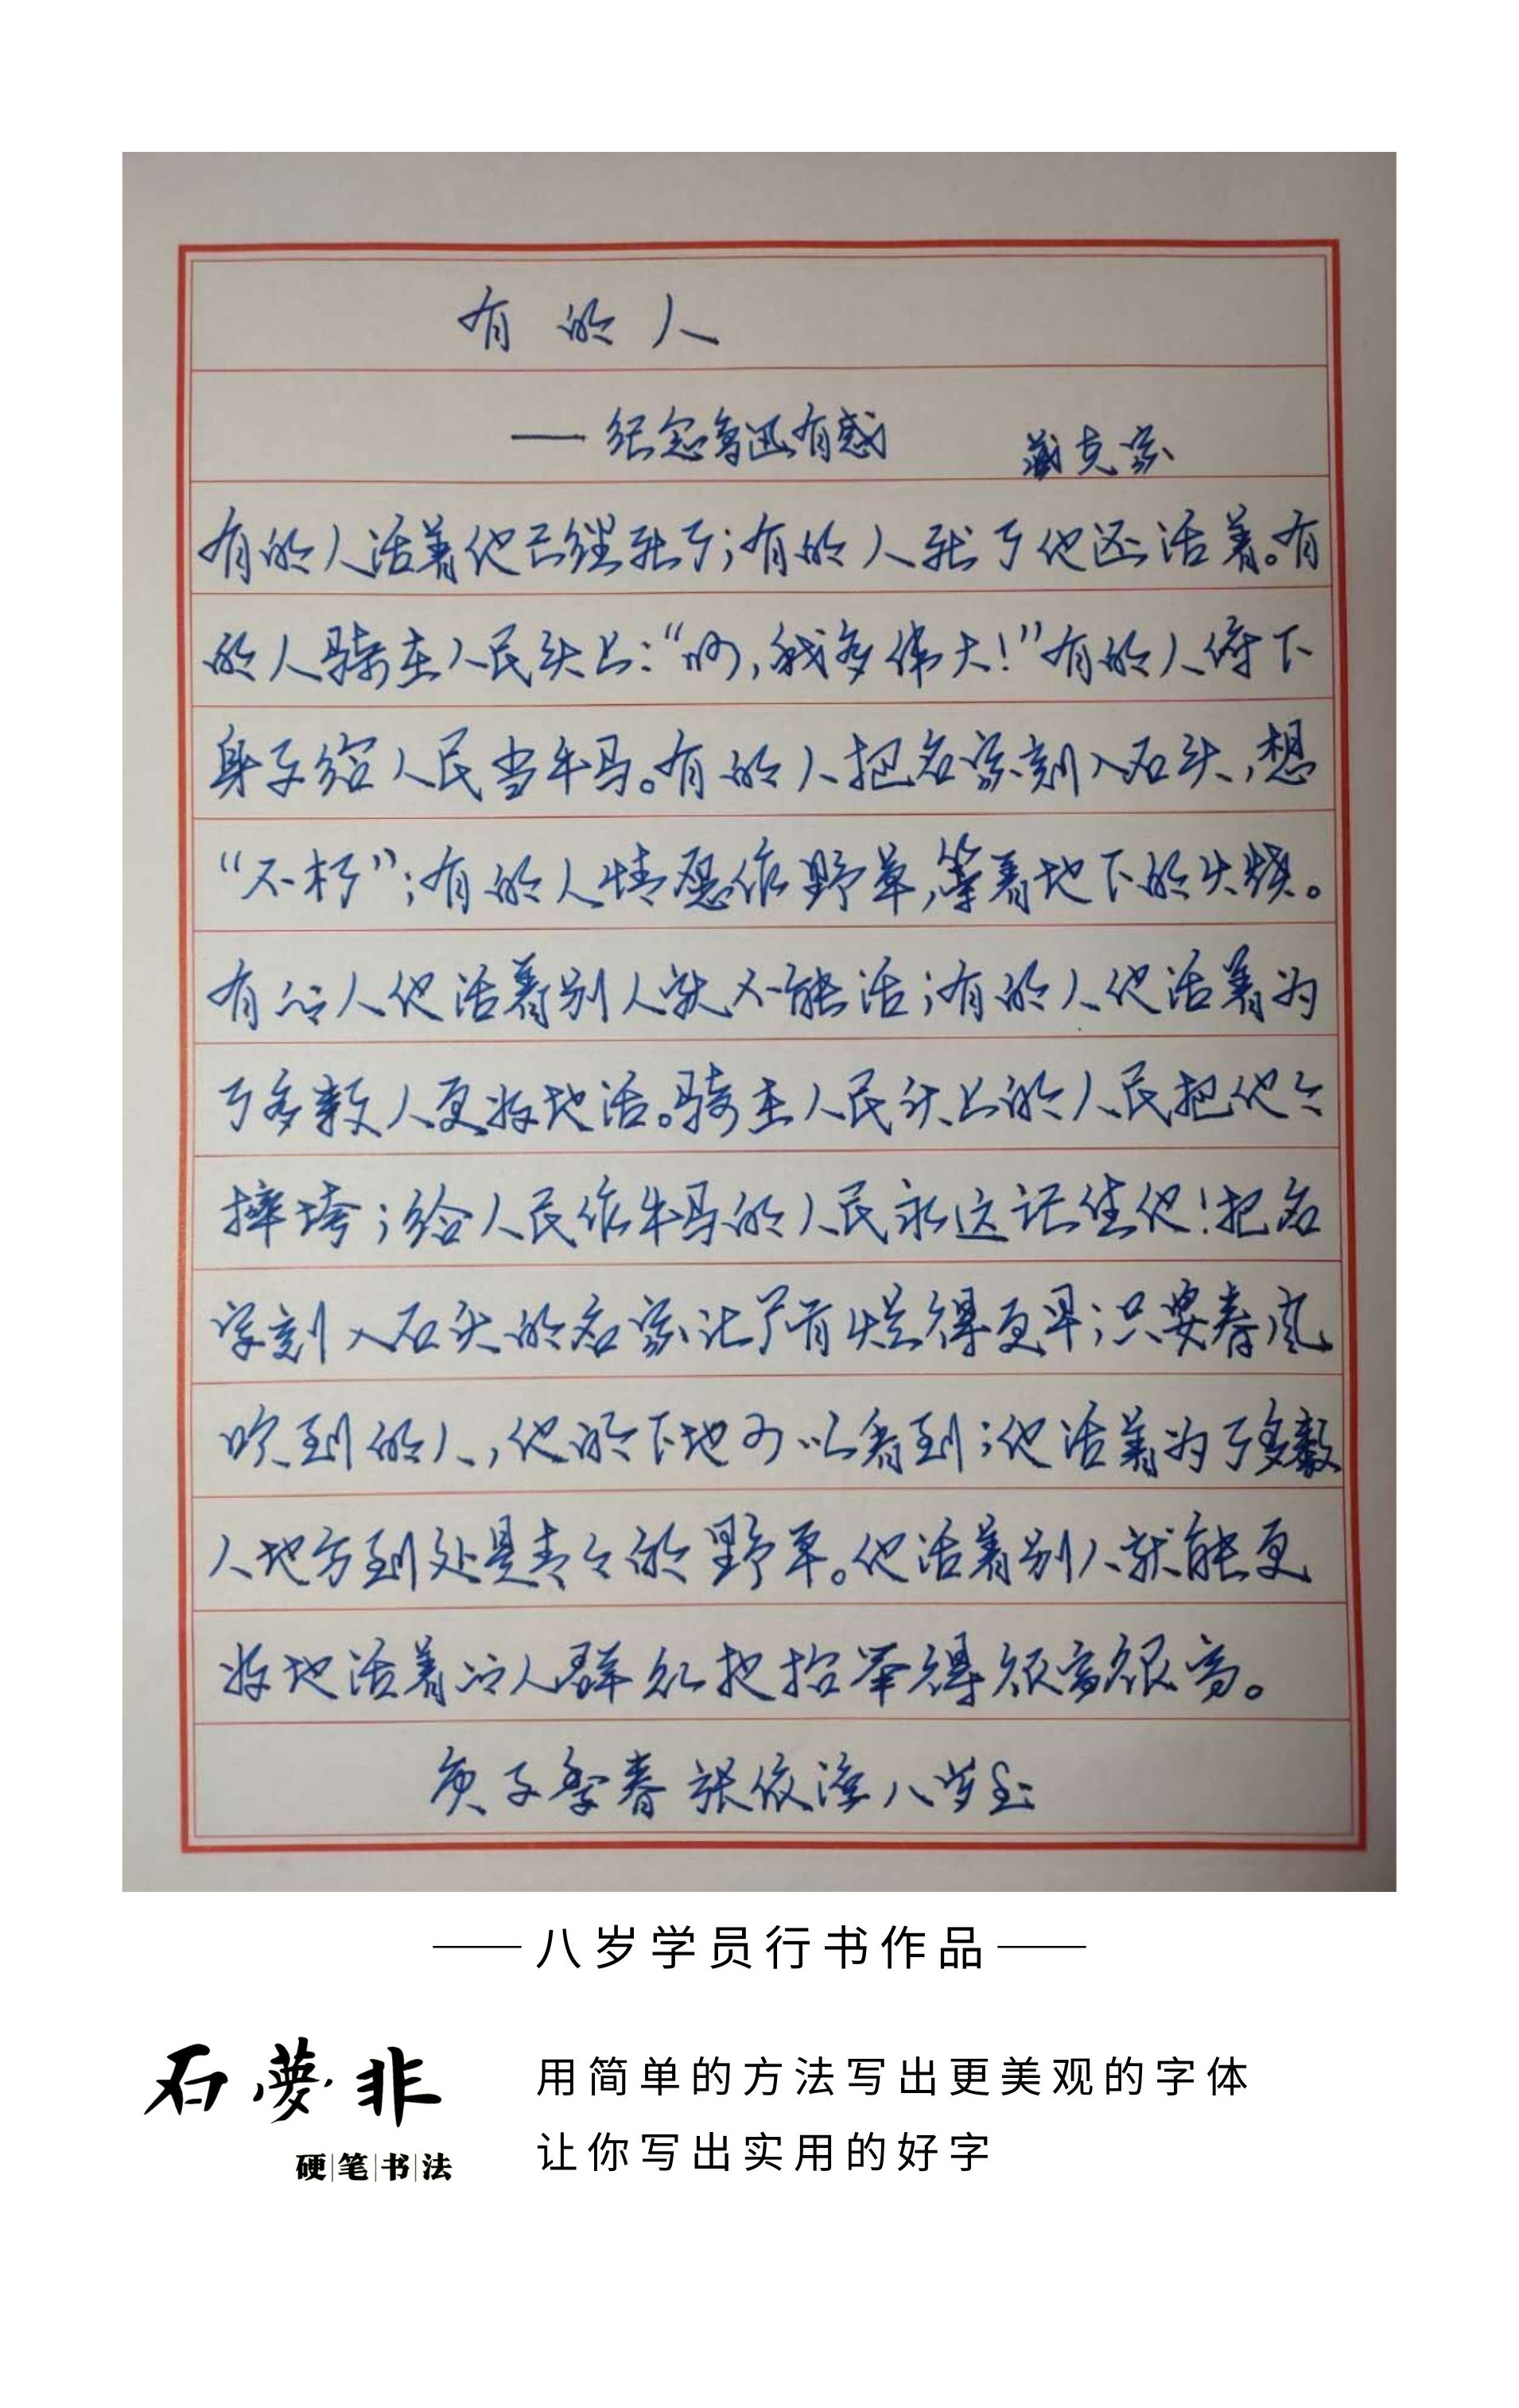 有的人
——纪念鲁迅有感 臧克家
有的人活着他已经死了；有的人死了他还活着。有
的人骑在人民头上：“啊，我多伟大！”有的人俯下
身子给人民当牛马。有的人把名字刻入石头，想
“不朽”；有的人情愿作野草，等着地下的火烧。
有的人他活着别人就不能活；有的人他活着为
了多数人更好地活。骑在人民头上的人民把他
摔垮；给人民作牛马的人民永远记住他！把名
字刻入石头的名字比尸首烂得更早；只要春风
吹到的人，他的下地可以看到；他活着为了多数
人地方到处是青々的野草。他活着别人就能更
好地活着的人群众把抬举得很高很高。
庚子季春 张依 八岁
——八岁学员行书作品——
石夢非
硬|笔|书|法
用简单的方法写出更美观的字体
让你写出实用的好字